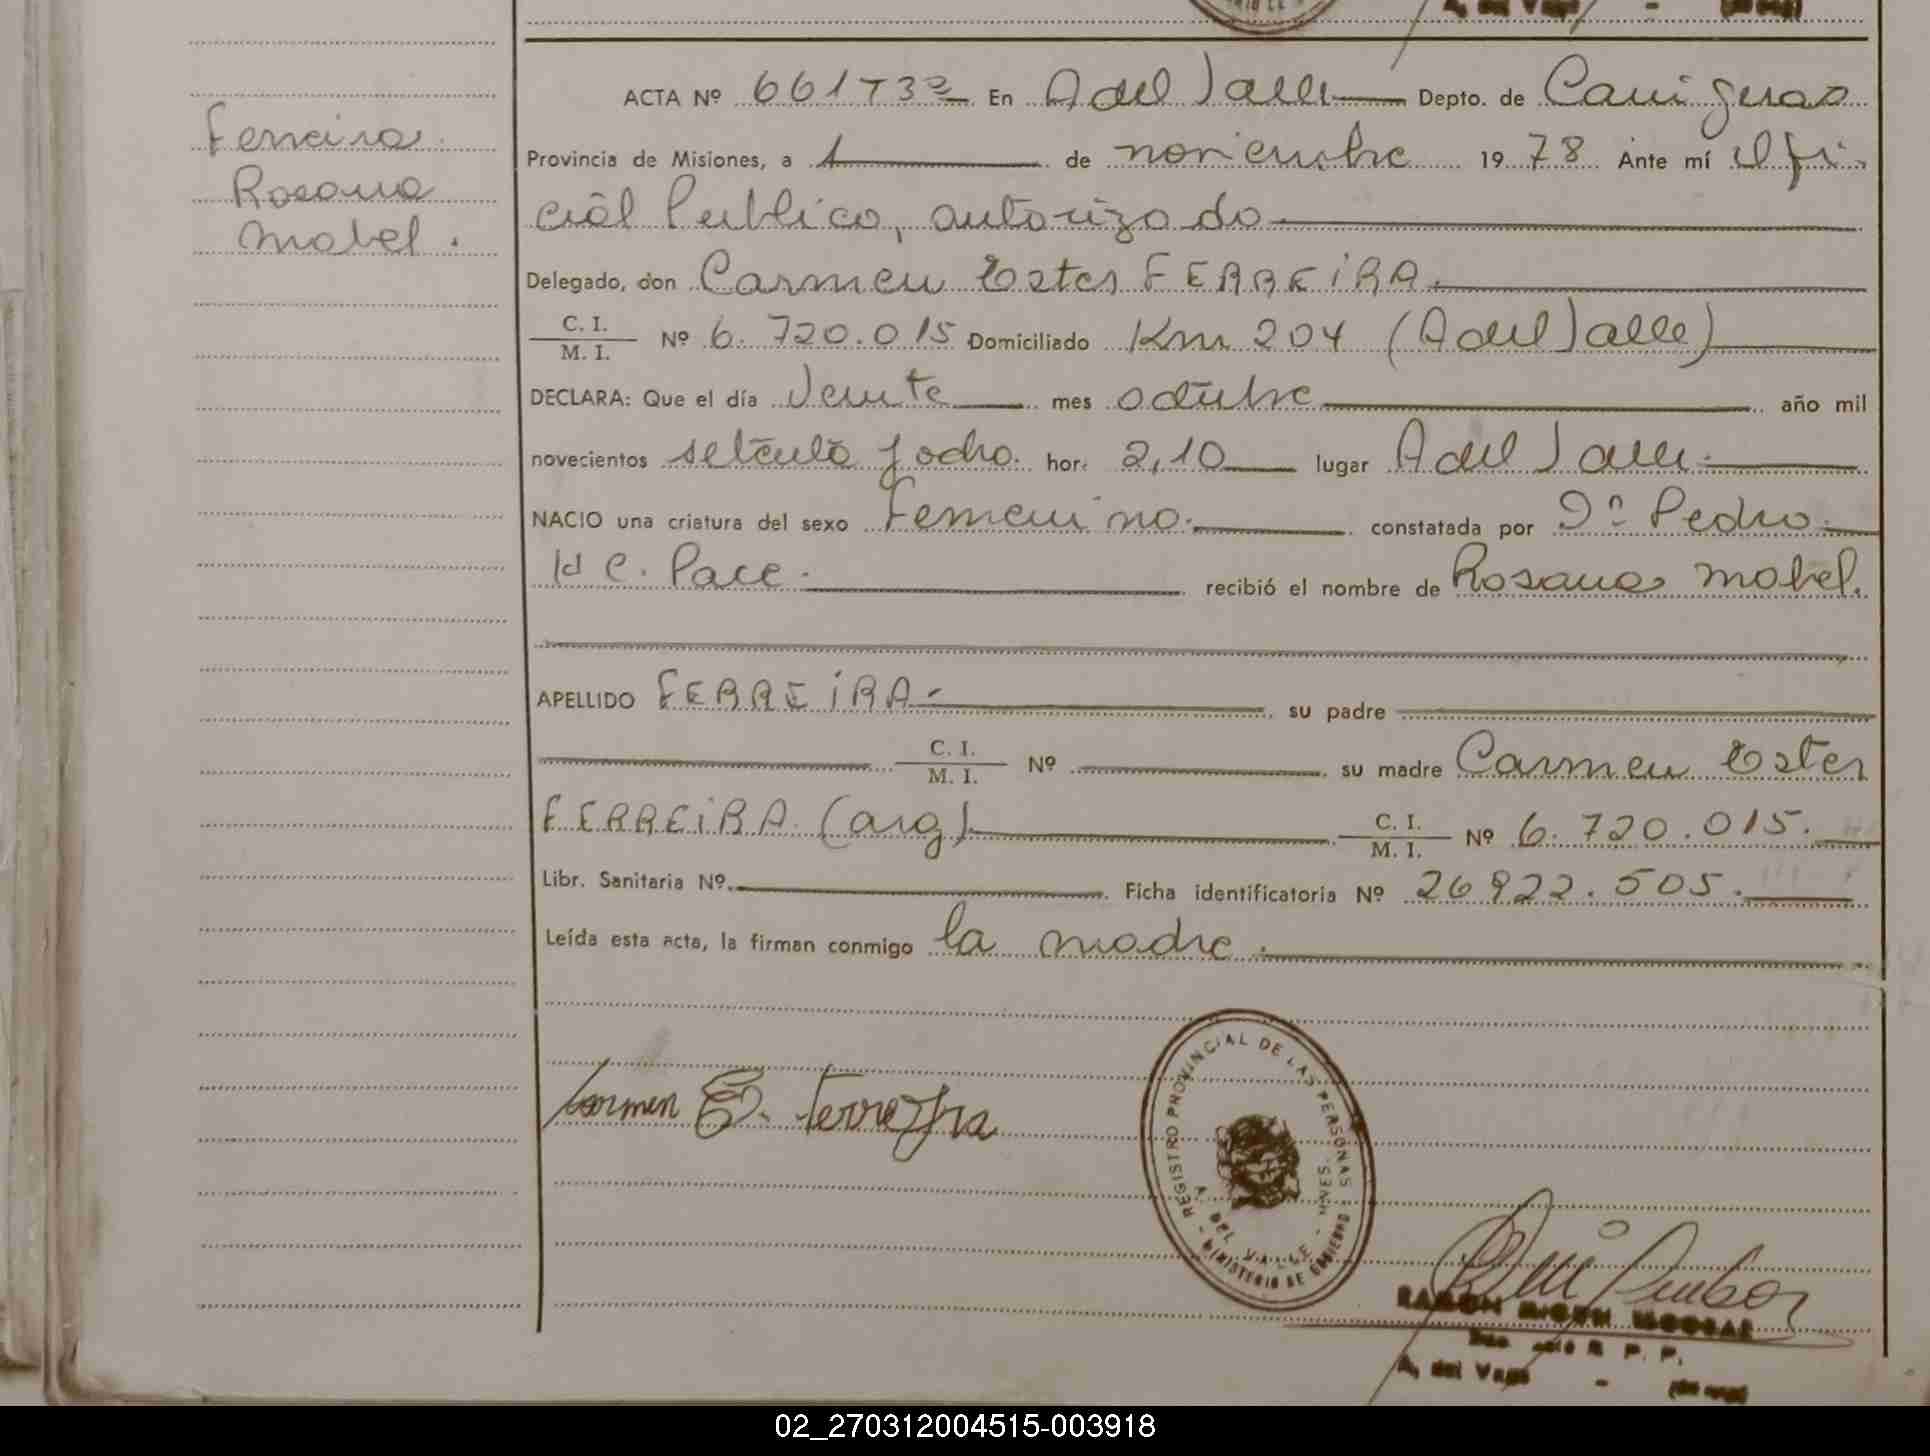 Ferreira
Rosana
Mabel.
ACTA Nº 661 T 3º En A del Valle Depto. de Cainguas
Provincia de Misiones, a 1 de noviembre 1978 Ante mí el Ofi-
cial Publico, autorizado
Delegado, don Carmen Ester FERREIRA.
C. I.
M. I. Nº 6.720.015 Domiciliado Km 204 (A del Valle)
DECLARA: Que el día veinte mes octubre año mil
novecientos setenta y ocho hor. 2,10 lugar A del Valle.
NACIO una criatura del sexo Femenino. constatada por Dn Pedro
H C. Pace. recibió el nombre de Rosana Mabel.
APELLIDO FERREIRA su padre
C. I.
M. I. Nº su madre Carmen Ester
FERREIRA (arg) C. I.
M. I. Nº 6.720.015.
Libr. Sanitaria Nº Ficha identificatoria Nº 26922.505.
Leída esta acta, la firman conmigo la madre.
Carmen E. Ferreyra
REGISTRO PROVINCIAL DE LAS PERSONAS
MINISTERIO DE GOBIERNO
A. DEL VALLE - MNES.
02_270312004515-003918